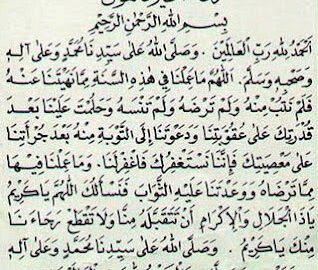 بِسْمِ اللهِ الرَّحْمٰنِ الرَّحِيْمِ
اَلْحَمْدُ لِلّٰهِ رَبِّ الْعَالَمِيْنَ . وَصَلَّى اللهُ عَلَى سَيِّدِنَا مُحَمَّدٍ وَعَلَى اٰلِهِ
وَصَحْبِهِ وَسَلَّمَ . اَللّٰهُمَّ مَا عَمِلْنَا فِي هٰذِهِ السَّنَةِ مِمَّا نَهَيْتَنَا عَنْهُ
فَلَمْ نَتُبْ مِنْهُ وَلَمْ تَرْضَهُ وَلَمْ تَنْسَهُ وَحَلَمْتَ عَلَيْنَا بَعْدَ
قُدْرَتِكَ عَلَى عُقُوْبَتِنَا وَدَعَوْتَنَا اِلَى التَّوْبَةِ مِنْهُ بَعْدَ جُرْأَتِنَا
عَلَى مَعْصِيَتِكَ فَاِنَّا نَسْتَغْفِرُكَ فَاغْفِرْلَنَا . وَمَا عَمِلْنَا فِيْهَا
مِمَّا تَرْضَاهُ وَوَعَدْتَنَا عَلَيْهِ الثَّوَابَ فَنَسْأَلُكَ اللّٰهُمَّ يَا كَرِيْمُ
يَا ذَا الْجَلَالِ وَالْاِكْرَامِ اَنْ تَتَقَبَّلَهُ مِنَّا وَلَا تَقْطَعْ رَجَاءَنَا
مِنْكَ يَا كَرِيْمُ . وَصَلَّى اللهُ عَلَى سَيِّدِنَا مُحَمَّدٍ وَعَلَى اٰلِهِ